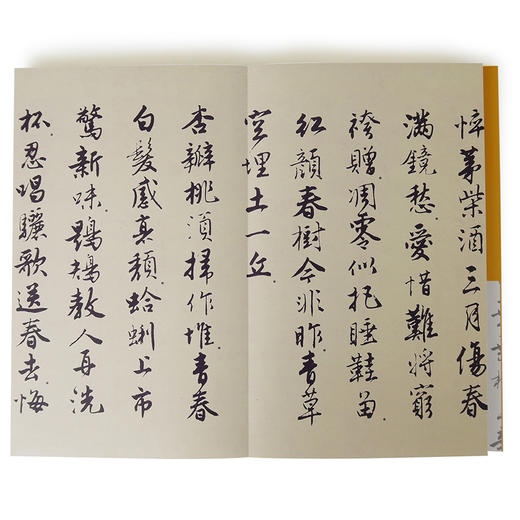 悴茅柴酒三月傷春
滿鏡愁愛惜難將窮
袴贈凋零似把睡鞋留
紅顏春樹今非昨青草
空埋土一丘
杏瓣桃須掃作堆青春
白髮感衰頹蛤蜊上市
驚新味鶗鴂教人再洗
杯忍唱驪歌送春去悔